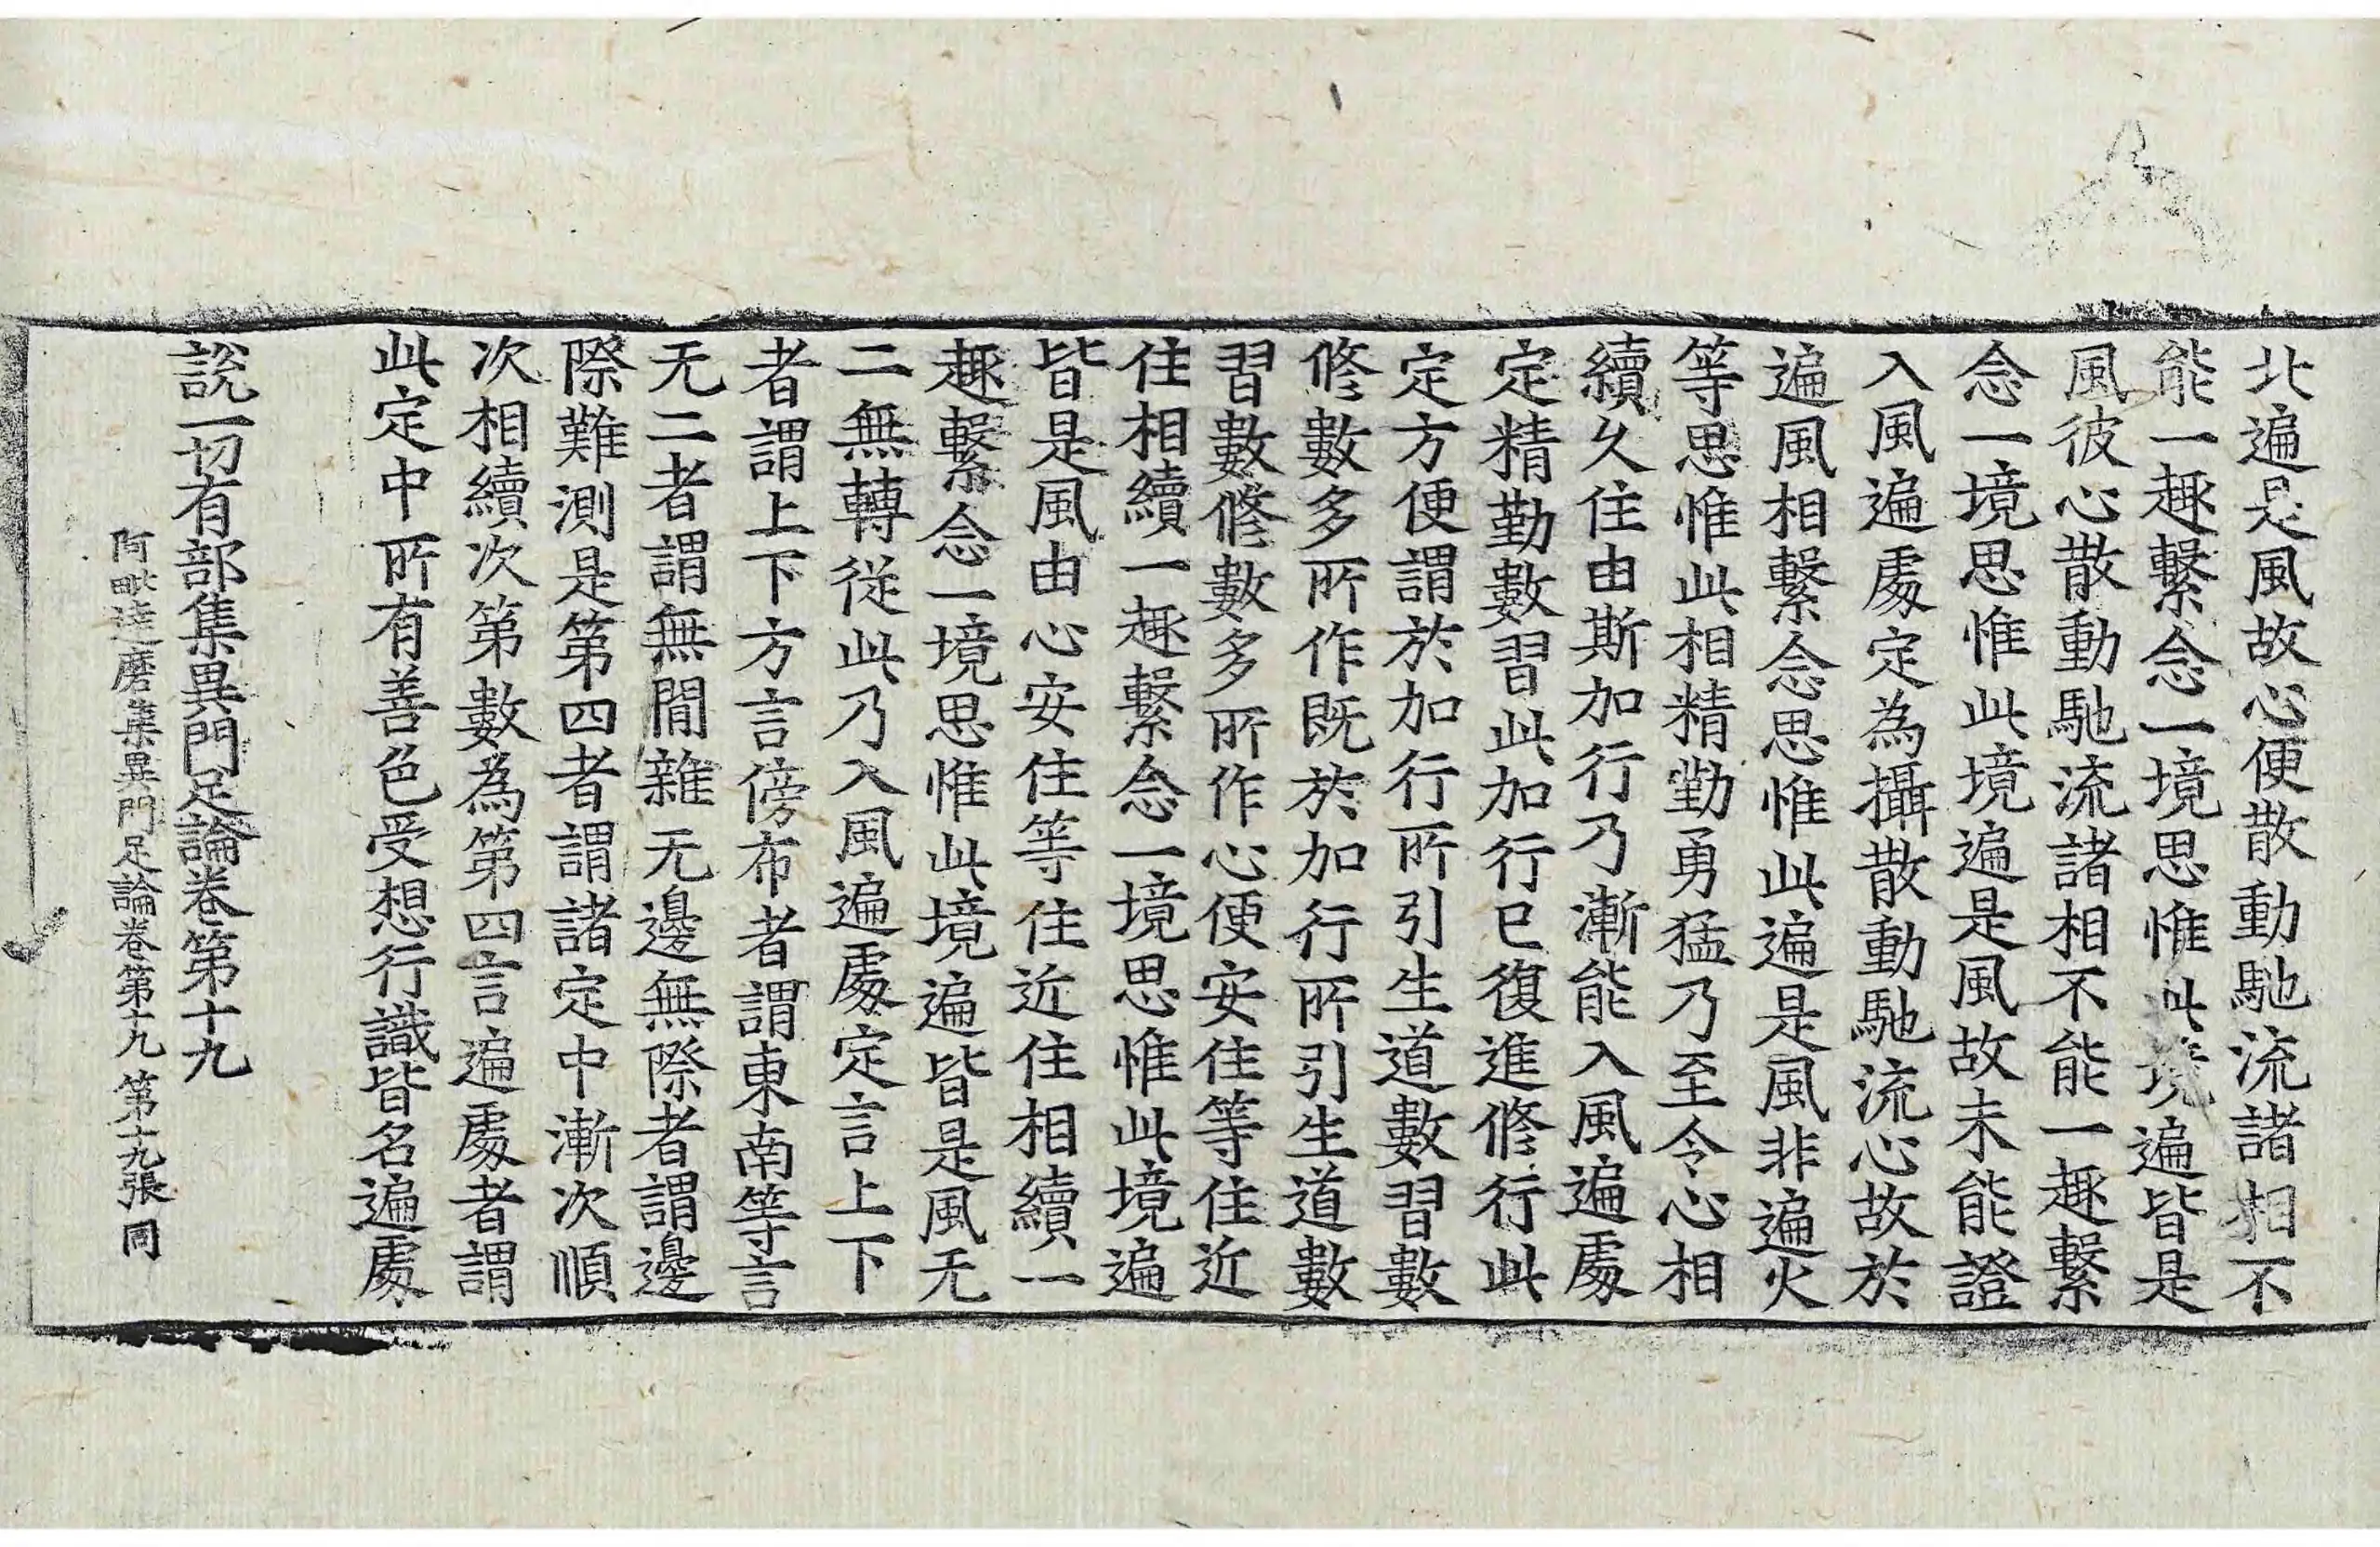 北遍是風故心便散動馳流諸相不
能一趣繫念一境思惟此境遍皆是
風彼心散動馳流諸相不能一趣繫
念一境思惟此境遍是風故未能證
入風遍處定為攝散動馳流心故於
遍風相繫念思惟此遍是風非遍火
等思惟此相精勤勇猛乃至令心相
續久住由斯加行乃漸能入風遍處
定精勤數習此加行已復進修行此
定方便謂於加行所引生道數習數
修數多所作既於加行所引生道數
習數修數多所作心便安住等住近
住相續一趣繫念一境思惟此境遍
皆是風由心安住等住近住相續一
趣繫念一境思惟此境遍皆是風无
二無轉從此乃入風遍處定言上下
者謂上下方言傍布者謂東南等言
无二者謂無間雜无邊無際者謂邊
際難測是第四者謂諸定中漸次順
次相續次第數為第四言遍處者謂
此定中所有善色受想行識皆名遍處
說一切有部集異門足論卷第十九
阿毗達磨集異門足論卷第十九 第十九張 同